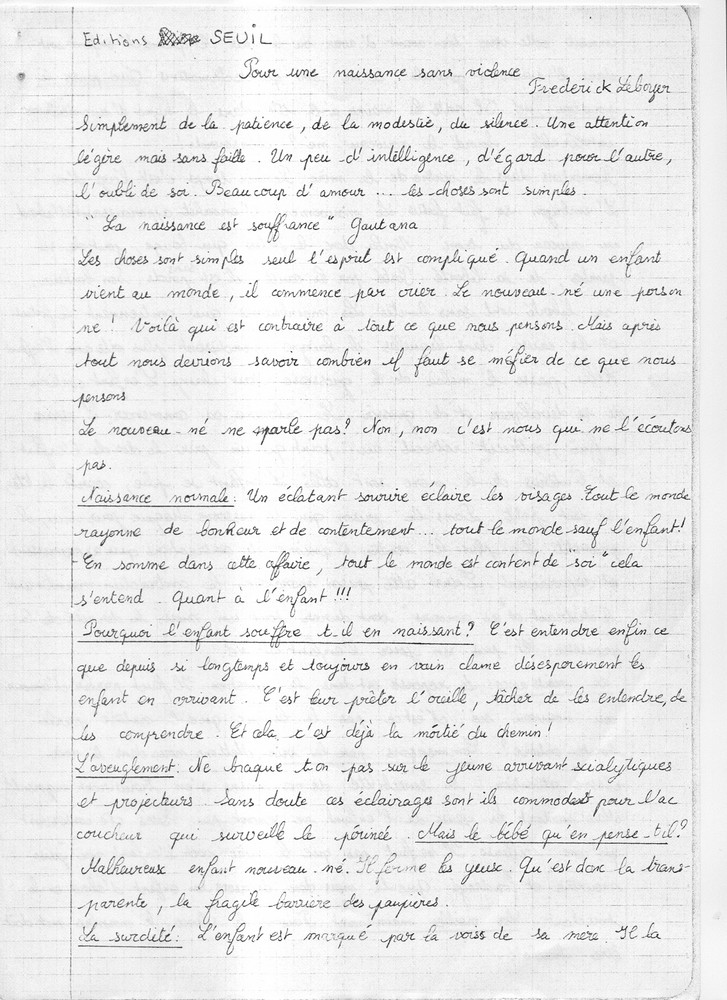 Editions SEUIL
Pour une naissance sans violence
Frederick Leboyer
Simplement de la patience, de la modestie, du silence. Une attention
légère mais sans faille. Un peu d'intelligence, d'égard pour l'autre,
l'oubli de soi. Beaucoup d'amour ... les choses sont simples.
"La naissance est souffrance" Gautana
Les choses sont simples seul l'esprit est compliqué. Quand un enfant
vient au monde, il commence par crier. Le nouveau-né une person
ne! Voilà qui est contraire à tout ce que nous pensons. Mais après
tout nous devrions savoir combien il faut se méfier de ce que nous
pensons
Le nouveau-né ne parle pas? Non, non c'est nous qui ne l'écoutons
pas.
Naissance normale: Un éclatant sourire éclaire les visages. Tout le monde
rayonne de bonheur et de contentement... tout le monde sauf l'enfant!
En somme dans cette affaire, tout le monde est content de "soi" cela
s'entend. Quant à l'enfant!!!
Pourquoi l'enfant souffre t-il en naissant? C'est entendre enfin ce
que depuis si longtemps et toujours en vain clame désesperement les
enfant en arrivant. C'est leur prêter l'oreille, tâcher de les entendre, de
les comprendre. Et cela, c'est déjà la moitié du chemin!
L'aveuglement: Ne braque t on pas sur le jeune arrivant scialytiques
et projecteurs. Sans doute ces éclairages sont ils commodes pour l'ac
coucheur qui surveille le périnée. Mais le bébé qu'en pense-t-il?
Malheureux enfant nouveau-né. Il ferme les yeux. Qu'est donc la trans-
parente, la fragile barrière des paupières.
La surdité: L'enfant est marqué par la voix de sa mère. Il la